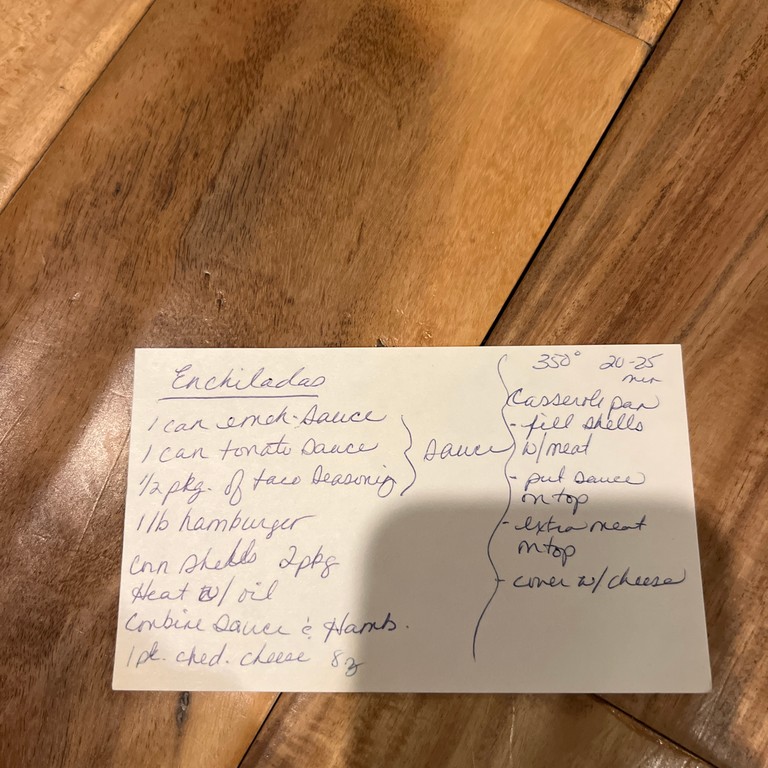 Enchiladas
1 can ench. sauce
1 can tomato sauce
1/2 pkg. of taco seasoning
} sauce
1 lb hamburger
corn shells 2 pkg
Heat w/ oil
Combine sauce & Hamb.
1 pk. ched. cheese 8z
350° 20-25
min
Casserole pan
- fill shells
w/ meat
- put sauce
on top
- extra meat
on top
- cover w/ cheese